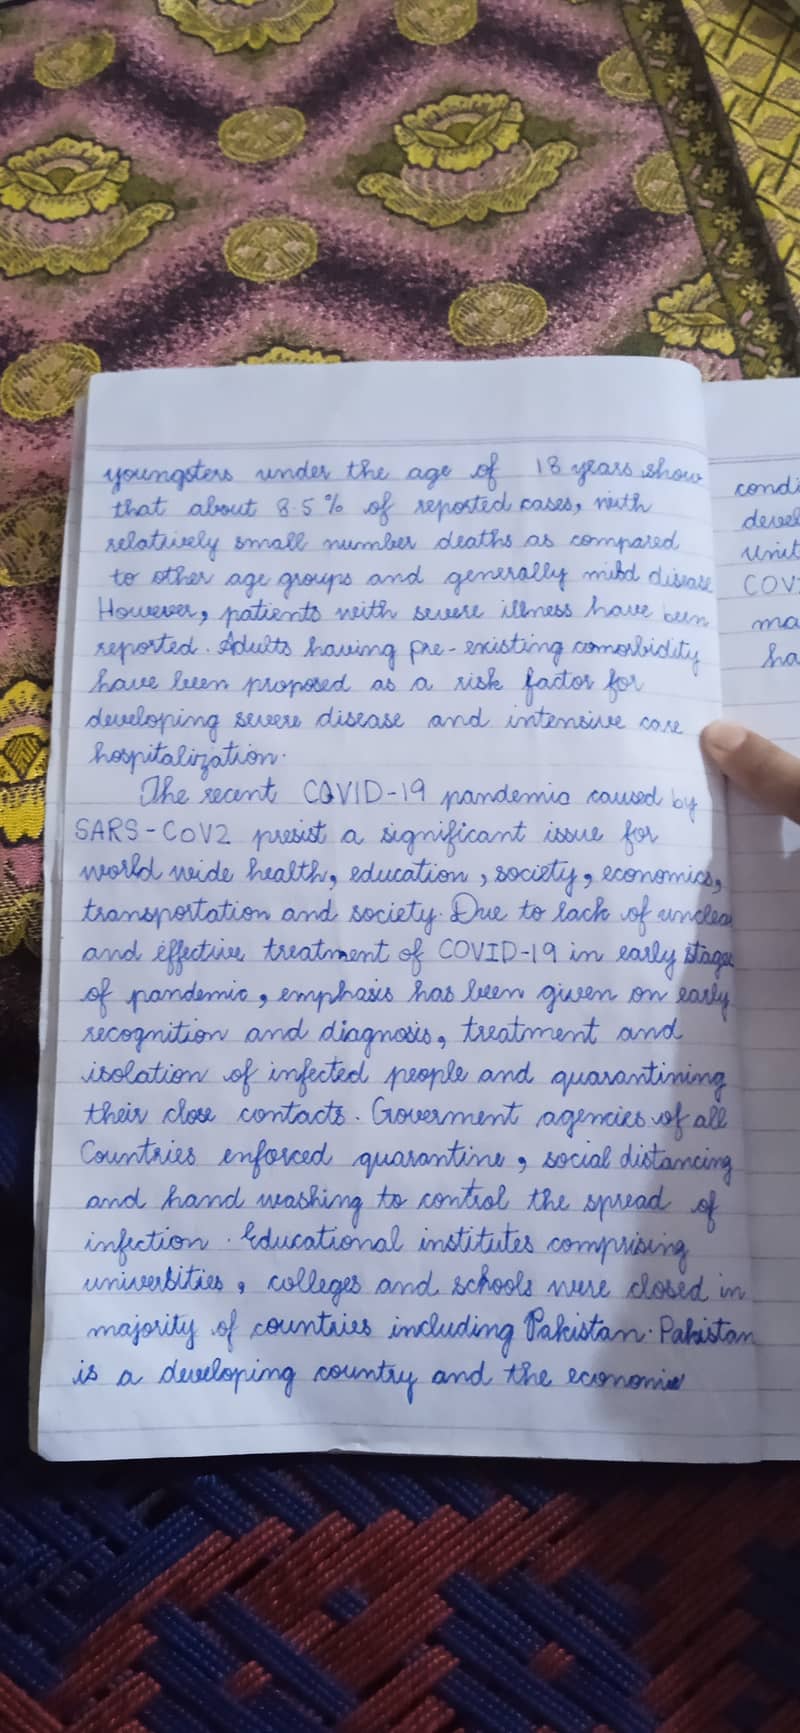 youngsters under the age of 18 years show
that about 8.5% of reported cases, with
relatively small number deaths as compared
to other age groups and generally mild disease
However, patients with severe illness have been
reported. Adults having pre-existing comorbidity
have been proposed as a risk factor for
developing severe disease and intensive care
hospitalization.
The recent COVID-19 pandemic caused by
SARS-CoV2 presist a significant issue for
world wide health, education, society, economics,
transportation and society. Due to lack of unclear
and effective treatment of COVID-19 in early stages
of pandemic, emphasis has been given on early
recognition and diagnosis, treatment and
isolation of infected people and quarantining
their close contacts. Goverment agencies of all
Countries enforced quarantine, social distancing
and hand washing to control the spread of
infection. Educational institutes comprising
universities, colleges and schools were closed in
majority of countries including Pakistan. Pakistan
is a developing country and the economic
condi
devel
Unit
COV
ma
ha